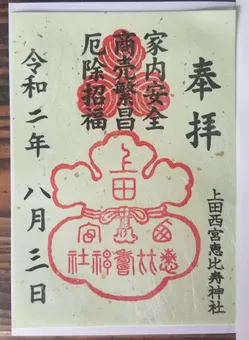 奉拝
家内安全
商売繁昌
厄除招福
上田
西宮
恵比寿神社
上田西宮恵比寿神社
令和二年 八月三日